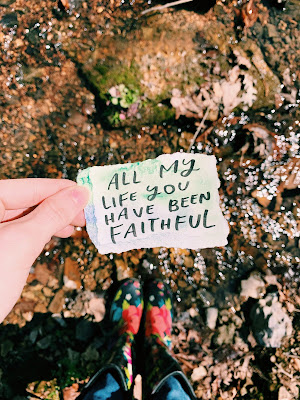 ALL MY
LIFE YOU
HAVE BEEN
FAITHFUL